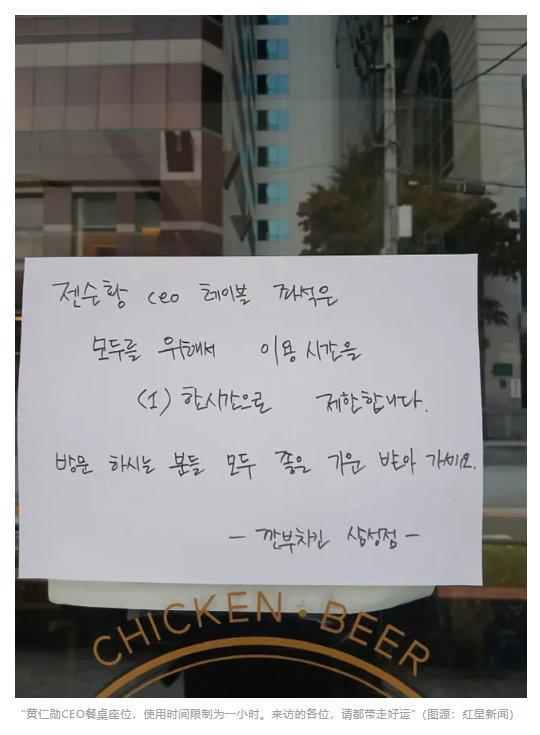 젠슨황 ceo 테이블 좌석은
모두를 위해서 이용 시간을
(1) 한시간으로 제한합니다.
방문 하시는 분들 모두 좋은 기운 받아 가세요.
- 깐부치킨 삼성점 -
CHICKEN • BEER
“黄仁勋CEO餐桌座位，使用时间限制为一小时。来访的各位，请都带走好运”(图源：红星新闻)